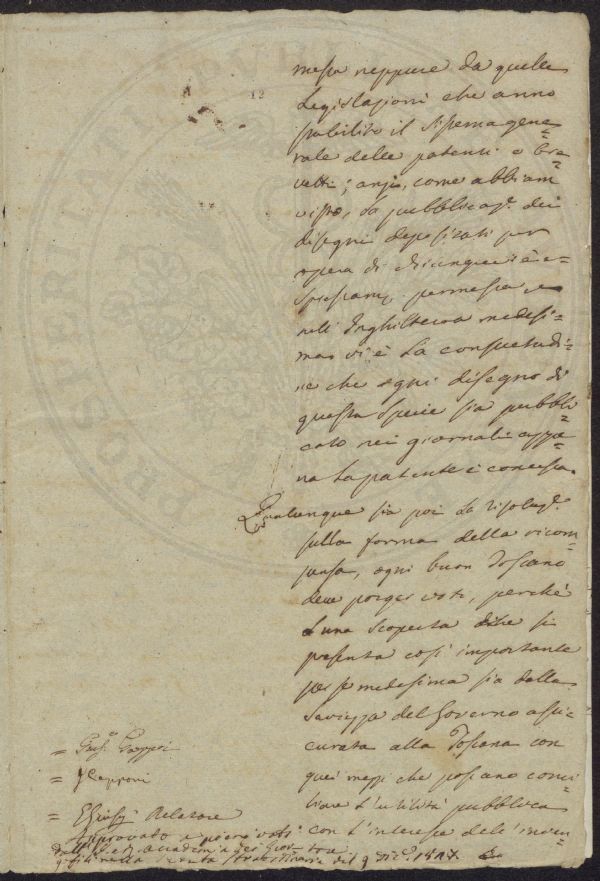 messa neppure da quelle
Legislazioni che anno
stabilito il sistema gene=
rale delle patenti o bre=
vetti; anzi, come abbiam
visto, la pubblicaz.e dei
disegni depositati per
opera di chiunque si è e=
spressam.e permessa, e
nell'Inghilterra medesi=
ma vi è la consuetudi=
ne che ogni disegno di
questa specie sia pubbli=
cato nei giornali appe=
na la patente è concessa.
Qualunque sia poi la risoluz.e
sulla forma della ricom=
pensa, ogni buon Toscano
deve porger voti, perchè
una scoperta che si
presenta così importante
per se medesima sia dalla
Saviezza del Governo assi=
curata alla Toscana con
quei mezzi che possano conci=
liare l'utilità pubblica
con l'interesse dell'inven=
= Gius. Gazzeri
= Capponi
= Relatore
Approvato a pieni voti
dall' Accademia dei Georgo=
fili nella straordinaria del 9 Dic.
PROSPERITATI PUBLICAE